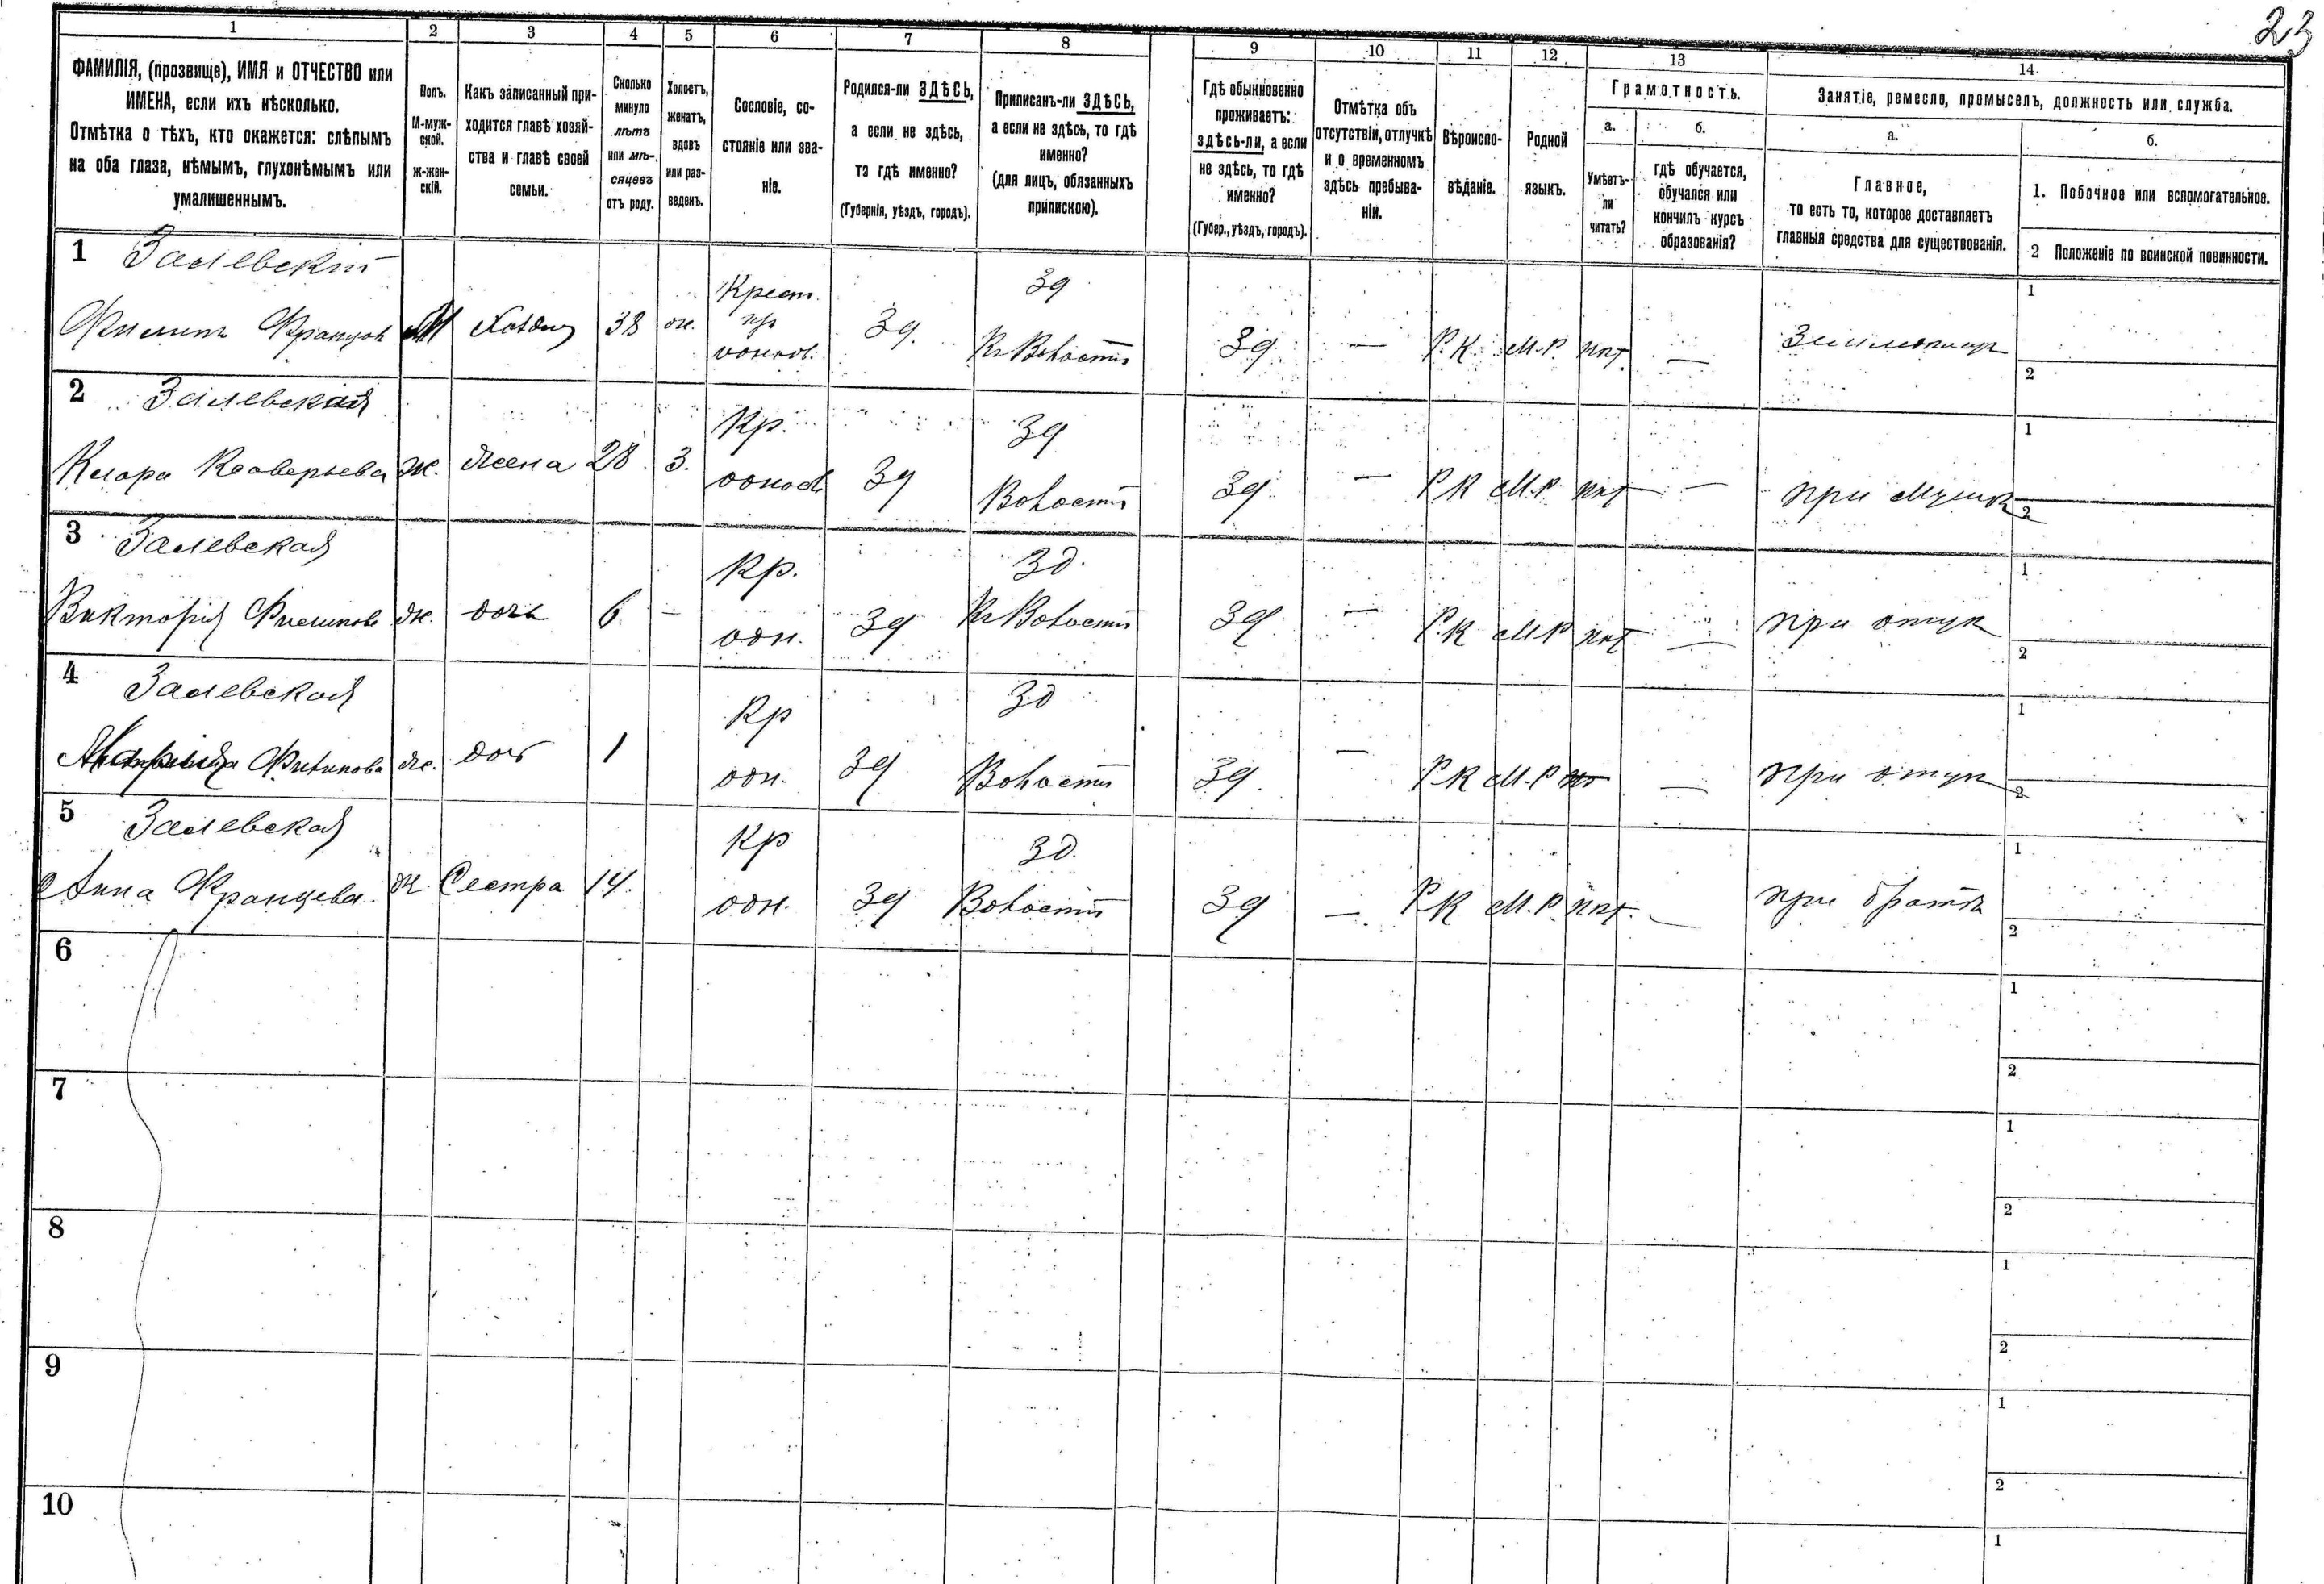 23
1 2 3 4 5 6 7 8 9 10 11 12 13 14
ФАМИЛІЯ, (прозвище), ИМЯ и ОТЧЕСТВО или
ИМЕНА, если ихъ нѣсколько.
Отмѣтка о тѣхъ, кто окажется: слѣпымъ
на оба глаза, нѣмымъ, глухонѣмымъ или
умалишеннымъ.
Полъ.
М-муж-
ской.
Ж-жен-
скій.
Какъ записанный при-
ходится главѣ хозяй-
ства и главѣ своей
семьи.
Сколько
минуло
лѣтъ
или мѣ-
сяцевъ
отъ роду.
Холостъ,
женатъ,
вдовъ
или раз-
веденъ.
Сословіе, со-
стояніе или зва-
ніе.
Родился-ли ЗДѢСЬ,
а если не здѣсь,
то гдѣ именно?
(Губернія, уѣздъ, городъ).
Приписанъ-ли ЗДѢСЬ,
а если не здѣсь, то гдѣ
именно?
(для лицъ, обязанныхъ
припискою).
Гдѣ обыкновенно
проживаетъ:
здѣсь-ли, а если
не здѣсь, то гдѣ
именно?
(Губер., уѣздъ, городъ).
Отмѣтка объ
отсутствіи, отлучкѣ
и о временномъ
здѣсь пребыва-
ніи.
Вѣроиспо-
вѣданіе.
Родной
языкъ.
Грамотность.
а.
Умѣетъ-
ли
читать?
б.
гдѣ обучается,
обучался или
кончилъ курсъ
образованія?
Занятіе, ремесло, промыселъ, должность или служба.
а.
Главное,
то есть то, которое доставляетъ
главныя средства для существованія.
б.
1. Побочное или вспомогательное.
2 Положеніе по воинской повинности.
1 Залевскій Крест. зд 1
Филипъ Францов М Хозяин 38 ж. зд. Волости зд — Р.К. М.Р. нѣт — 2
2 Залевская Кр. зд 1
Клара Ксаверьева ж. жена 28 з. зд Волости зд — Р К М.Р. нѣт — при мужѣ 2
3 Залевская Кр. зд. 1
Викторія Филипова ж. дочь 6 — одн. зд Волости зд — Р.К М Р нѣт — при отцѣ 2
4 Залевская Кр зд 1
Филипова ж. доч 1 одн. зд Волости зд — Р К М.Р — при отцѣ 2
5 Залевская Кр зд. 1
Анна Францева. ж Сестра 14. одн. зд Волости зд — Р К М.Р. нѣт. — при братѣ 2
6 1
2
7 1
2
8 1
2
9 1
2
10 1